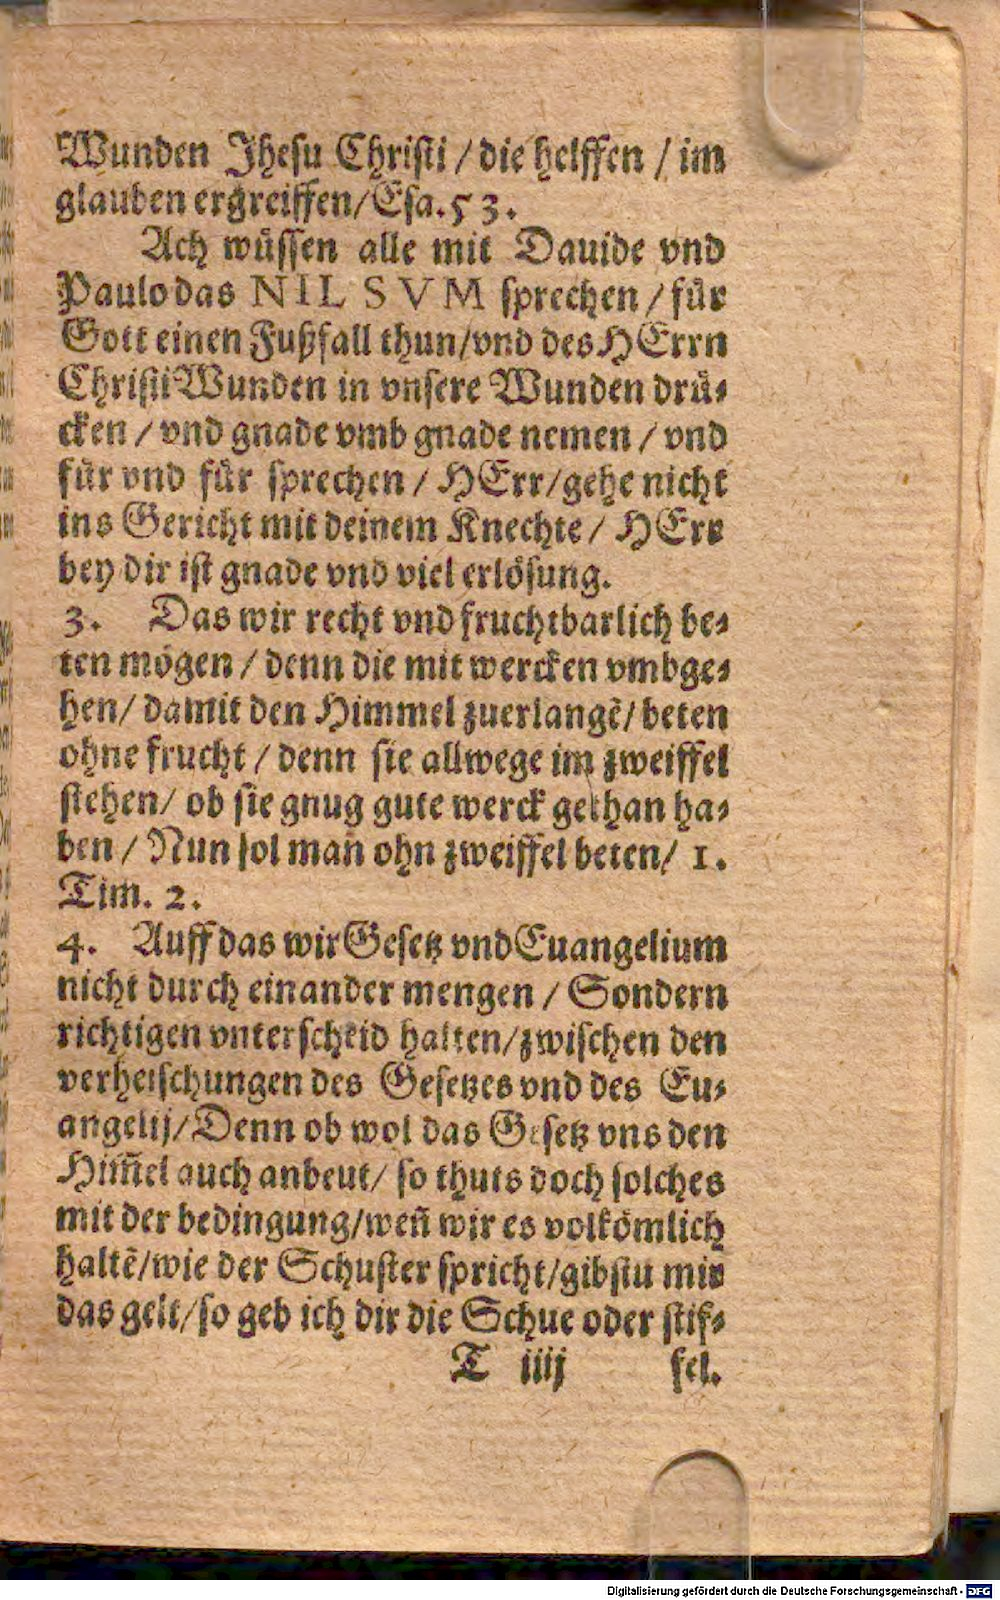 Wunden Jhesu Christi / die helffen / im
glauben ergreiffen/Esa.53.
Ach müssen alle mit Dauide vnd
Paulo das NIL SVM sprechen / für
Gott einen Fußfall thun/vnd des HErrn
Christi Wunden in vnsere Wunden drü-
cken / vnd gnade vmb gnade nemen / vnd
für vnd für sprechen / HErr/gehe nicht
ins Gericht mit deinem Knechte / HErr
bey dir ist gnade vnd viel erlösung.
3. Das wir recht vnd fruchtbarlich be-
ten mögen / denn die mit wercken vmbge-
hen/ damit den Himmel zuerlangẽ/ beten
ohne frucht / denn sie allwege im zweiffel
stehen/ ob sie gnug gute werck gethan ha-
ben / Nun sol man ohn zweiffel beten/ 1.
Tim. 2.
4. Auff das wir Gesetz vnd Euangelium
nicht durch einander mengen / Sondern
richtigen vnterscheid halten/zwischen den
verheischungen des Gesetzes vnd des Eu-
angelij/Denn ob wol das Gesetz vns den
Him̃el auch anbeut/ so thuts doch solches
mit der bedingung/weñ wir es volkömlich
haltẽ/wie der Schuster spricht/gibstu mir
das gelt/so geb ich dir die Schue oder stif-
T iiij fel.
Digitalisierung gefördert durch die Deutsche Forschungsgemeinschaft - DFG